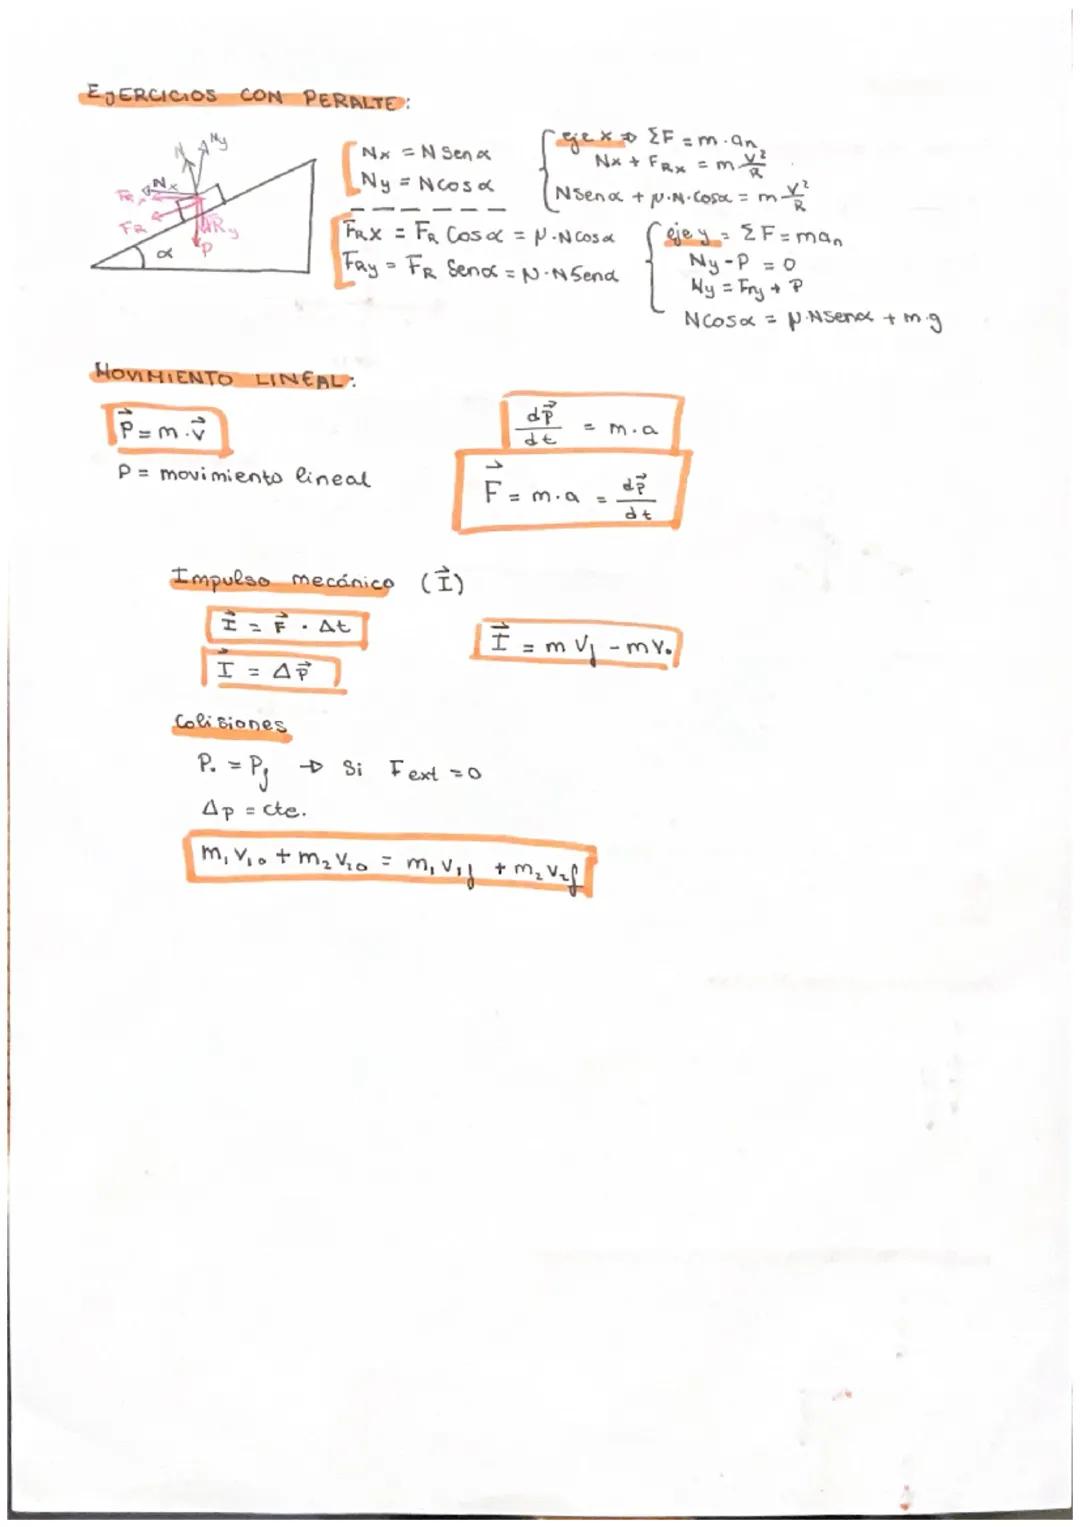 EJERCICIOS CON PERALTE:
N Ny
Nx
FRx
FR
FRy
P
α
Nx = N Sen α
Ny = N Cos α
FRx = FR Cos α = μ·N Cos α
FRy = FR Sen α = μ·N Sen α
eje x → ΣF = m·an
Nx + FRx = m V²/R
N Sen α + μ·N·Cos α = m V²/R
eje y = ΣF = m an
Ny - P = 0
Ny = Fry + P
N Cos α = μ·N Sen α + m·g
MOVIMIENTO LINEAL:
P⃗ = m·v⃗
P = movimiento lineal
dP⃗/dt = m·a
F⃗ = m·a = dp⃗/dt
Impulso mecánico (I⃗)
I⃗ = F⃗ · Δt
I⃗ = Δp⃗
I⃗ = m Vf - m V₀
Colisiones
P₀ = Pf → Si Fext = 0
Δp = cte.
m₁ V₁₀ + m₂ V₂₀ = m₁ V₁f + m₂ V₂f